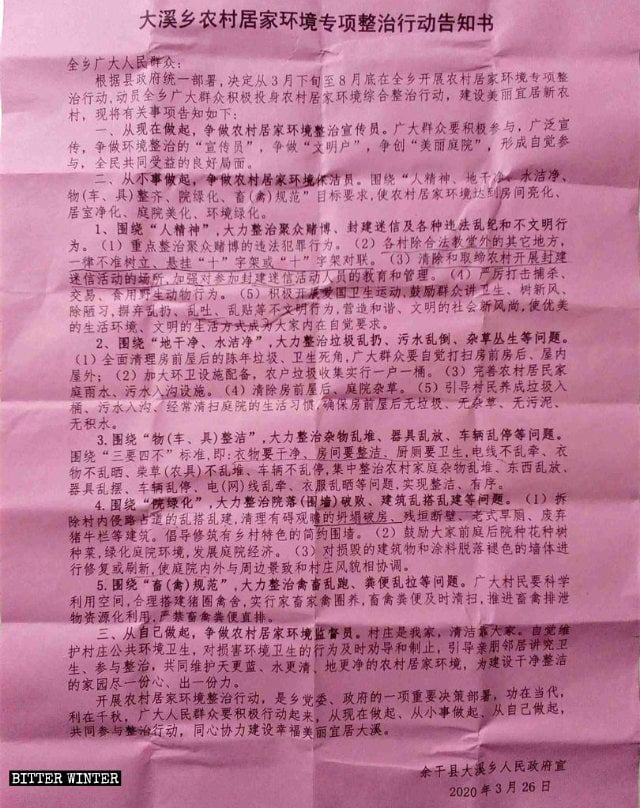 大溪乡农村居家环境专项整治行动告知书
全乡广大人民群众：
根据县政府统一部署，决定从3月下旬至8月底在全乡开展农村居家环境专项整
治行动，动员全乡广大群众积极投身农村居家环境综合整治行动，建设美丽宜居新农
村，现将有关事项告知如下：
一、从现在做起，争做农村居家环境整治宣传员。广大群众要积极参与，广泛宣
传，争做环境整治的“宣传员”，争做“文明户”，争创“美丽庭院”，形成自觉参
与，全民共同受益的良好局面。
二、从小事做起，争做农村居家环境保洁员。围绕“人精神、地干净、水洁净、
物(车、具)整齐、院绿化、畜(禽)规范”目标要求，使农村居家环境达到房间亮化、
居室净化、庭院美化、环境绿化。
1、围绕“人精神”，大力整治聚众赌博、封建迷信及各种违法乱纪和不文明行
为。（1）重点整治聚众赌博的违法犯罪行为。（2）各村除合法教堂外的其它地方，
一律不准树立、悬挂“十”字架或“十”字架对联。（3）清除和取缔农村开展封建
迷信活动的场所，加强对参加封建迷信活动人员的教育和管理。（4）严厉打击捕杀、
交易、食用野生动物行为。（5）积极开展爱国卫生运动，鼓励群众讲卫生、树新风、
除陋习，摒弃乱扔、乱吐、乱贴等不文明行为，营造和谐、文明的社会新风尚，使优美
的生活环境、文明的生活方式成为大家内在自觉要求。
2、围绕“地干净、水洁净”，大力整治垃圾乱扔、污水乱倒、杂草丛生等问题。
（1）全面清理房前屋后的陈年垃圾、卫生死角，广大群众要自觉打扫房前房后、屋内
屋外；（2）加大环卫设施配备，农户垃圾收集实行一户一桶。（3）完善农村居民家
庭雨水、污水入沟设施。（4）清除房前屋后、庭院杂草。（5）引导村民养成垃圾入
桶、污水入沟、经常清扫庭院的生活习惯，确保房前屋后无垃圾、无杂草、无污泥、
无积水。
3.围绕“物(车、具)整洁”，大力整治杂物乱堆、器具乱放、车辆乱停等问题。
围绕“三要四不”标准，即：衣物要干净、房间要整洁、厨厕要卫生，电线不乱牵、衣
物不乱晒、柴草(农具)不乱堆、车辆不乱停，集中整治农村家庭杂物乱堆、东西乱放、
器具乱摆、车辆乱停、电(网)线乱牵、衣服乱晒等问题，实现整洁、有序。
4.围绕“院绿化”，大力整治院落(围墙)破败、建筑乱搭乱建等问题。（1）拆
除村内侵路占道的乱搭乱建，清理有碍观瞻的坍塌破房、残垣断壁、老式旱厕、废弃
猪牛栏等建筑。倡导修筑有乡村特色的简约围墙。（2）鼓励大家前庭后院种花种树
种菜，绿化庭院环境，发展庭院经济。（3）对损毁的建筑物和涂料脱落褪色的墙体进
行修复或刷新，使庭院内外与周边景致和村庄风貌相协调。
5.围绕“畜(禽)规范”，大力整治禽畜乱跑、粪便乱拉等问题。广大村民要科学
利用空间，合理搭建猪圈禽舍，实行家畜家禽圈养，畜禽粪便及时清扫，推进畜禽排泄
物资源化利用，严禁畜禽粪便直排。
三、从自己做起，争做农村居家环境监督员。村庄是我家，清洁靠大家。自觉维
护村庄公共环境卫生，对损害环境卫生的行为及时劝导和制止，引导亲朋邻居讲究卫
生、参与整治，共同维护天更蓝、水更清、地更净的农村居家环境，为建设干净整洁
的家园尽一份心、出一份力。
开展农村居家环境整治行动，是乡党委、政府的一项重要决策部署，功在当代，
利在千秋，广大人民群众要积极行动起来，从现在做起、从小事做起、从自己做起，
共同参与整治行动，同心协力建设幸福美丽宜居大溪。
余干县大溪乡人民政府宣
2020年3月26日
BITTER WINTER